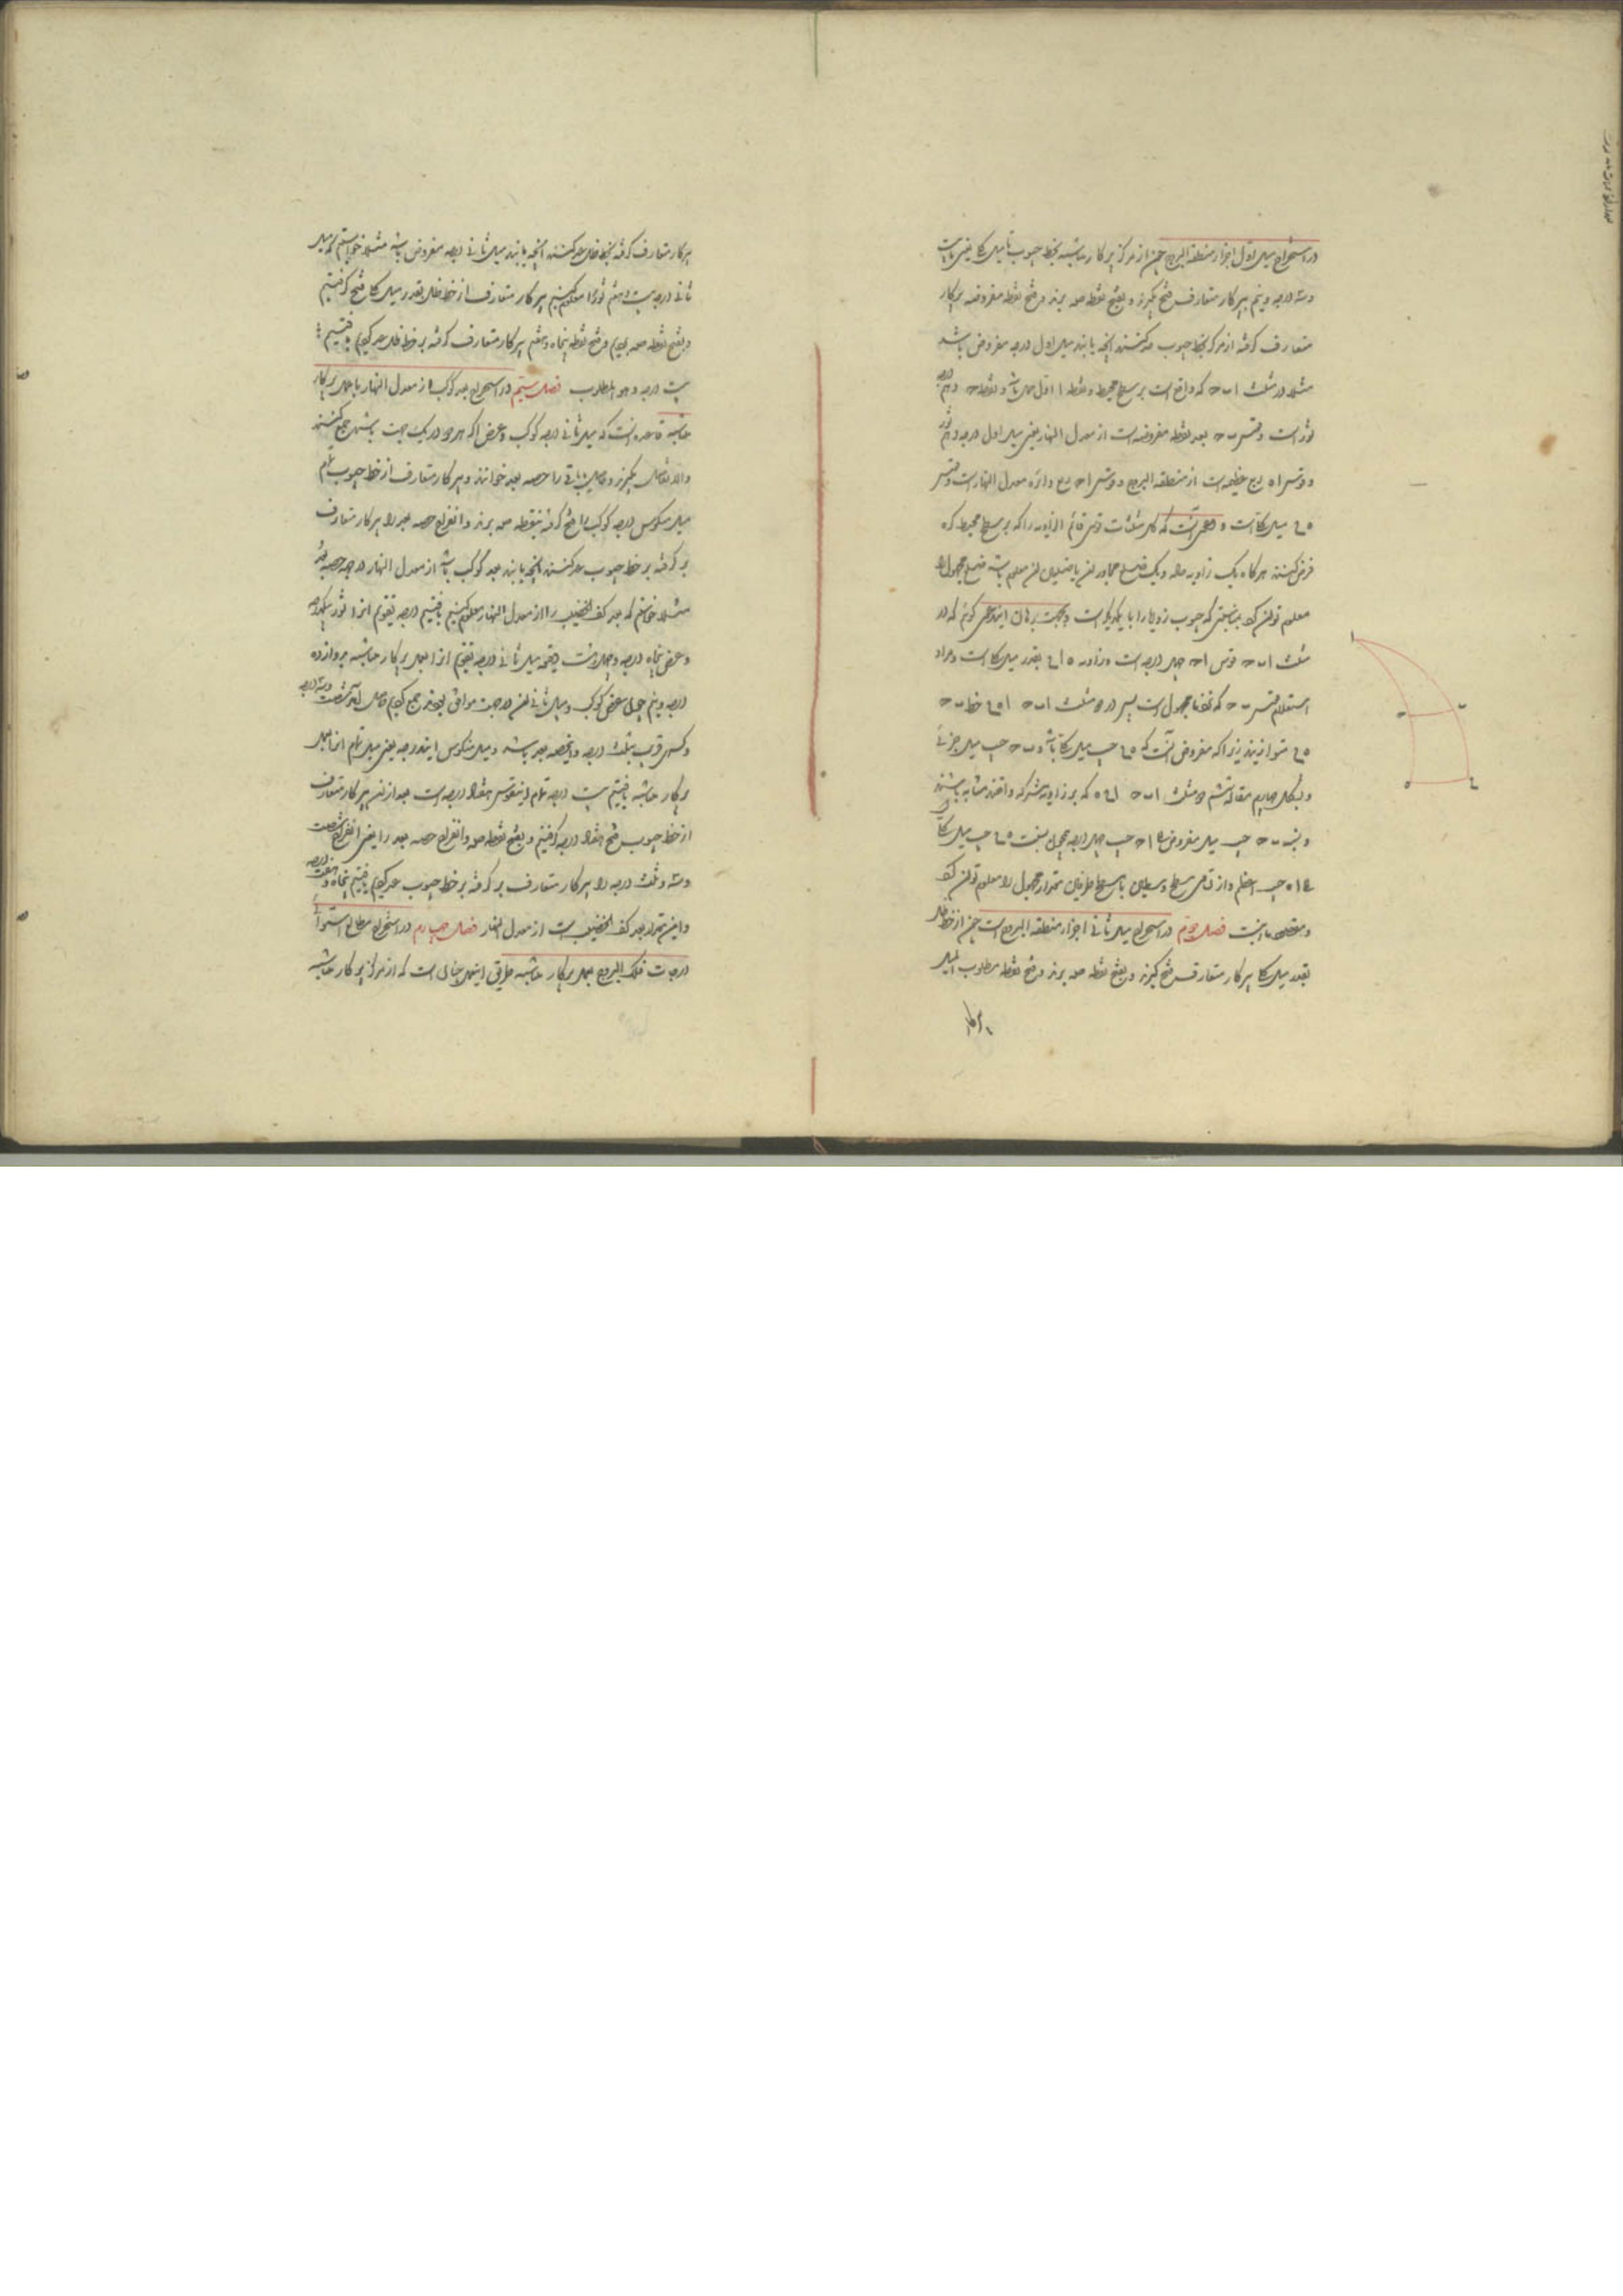 در استخراج میل اول اجزاء منطقة البروج چون از مرکز پرکار حاشیه بخط جیوب تا میل کلی یعنی بیست
وسه درجه ونیم بپرکار متعارف فتح گیرند و بفتح نقطه صه برند و فتح نقطه مفروضه بپرکار
متعارف گرفته از مرکز بخط جیوب عد کنند آنچه یابند میل اول درجه مفروض باشد
مثلا در مثلث ا ب ح که واقع است بر سطح محیط و نقطه ا اول حمل باشد و نقطه ح دهم درجه
ثور است و قوس ب ح بعد نقطه مفروضه است از معدل النهار یعنی میل اول درجه دهم ثور
و قوس ا ه ربع عظیمه است از منطقة البروج و قوس ا ح ربع دائره معدل النهار است و قوس
میل کلی است و دعوی آنست که کل مثلثات قوسی قائم الزاویه را که بر سطح محیط کره
فرض کنند هرگاه یک زاویه حاده و یک ضلع مجاور آن یا ضلعین آن معلوم باشد ضلع مجهول را
معلوم توان کرد بنسبتی که جیوب زوایا را با یکدیگر است و بجهت برهان این دعوی گوئیم که در
مثلث ا ب ح قوس ا ح چهل درجه است و زاویه بقدر میل کلی است و مراد
استعلام قوس ب ح که مجهول است پس در دو مثلث ا ب ح خط ب ح
متوازیند زیرا که مفروض آنست که جیب میل کلی باشد و ب ح جیب میل جزئی
و بشکل چهارم مقاله ششم دو مثلث ا ب ح که بر زاویه مشترکه واقعند متشابه باشند
ب ح جیب میل مفروض ا ح جیب چهل درجه بنسبت جیب میل کلی
جیب اعظم و از سطح وسطین با سطح طرفین مقدار مجهول را معلوم توان کرد
و مقصود ما اینست فصل دوم در استخراج میل ثانی اجزاء منطقة البروج است چون از خط ظل
بقدر میل کلی بپرکار متعارف فتح گیرند و بفتح نقطه صه برند و فتح نقطه مطلوب المیل
بپرکار
پرکار متعارف گرفته بخط ظل عد کنند آنچه یابند میل ثانی درجه مفروض باشد مثلا خواستیم که میل
ثانی درجه بیست وهشتم ثور را معلوم کنیم بپرکار متعارف از خط ظل بقدر میل کلی فتح گرفتیم
و بفتح نقطه صه بردیم و فتح نقطه پنجاه وهشتم بپرکار متعارف گرفته بر خط ظل عد کردیم یافتیم
بیست درجه وهو المطلوب فصل سیم در استخراج بعد کوکب از معدل النهار باعمال پرکار
حاشیه قاعده آنست که میل ثانی درجه کوکب و عرض اگر هر دو در یک جهت باشند جمع کنند
والا تفاضل گیرند و حاصل یا باقی را حصه بعد خوانند و بپرکار متعارف از خط جیوب تمام
میل منکوس درجه کوکب را فتح گرفته بنقطه صه برند و انفراج حصه بعد را بپرکار متعارف
بر گرفته بر خط جیوب عد کنند آنچه یابند بعد کوکب باشد از معدل النهار در جهت حصه بعد
مثلا خواستیم که بعد کف الخضیب را از معدل النهار معلوم کنیم یافتیم درجه تقویم آنرا ثور یکدرجه
و عرض پنجاه درجه و چهل و هشت دقیقه میل ثانی درجه تقویم آنرا بعمل پرکار حاشیه دوازده
درجه ونیم چون عرض کوکب و میل ثانی آن در جهت موافق بودند جمع کردیم حاصل آمد شصت وسه درجه
وکسری قریب بثلث درجه و این حصه بعد باشد و میل منکوس این درجه یعنی میل تمام آنرا بعمل
پرکار حاشیه یافتیم بیست درجه تمام این قوس هفتاد درجه است بعد از آن بپرکار متعارف
از خط جیوب فتح هفتاد درجه گرفتیم و بفتح نقطه صه و انفراج حصه بعد را یعنی انفراج شصت
وسه وثلث درجه را بپرکار متعارف بر گرفته بر خط جیوب عد کردیم یافتیم پنجاه و هفت درجه
و این مقدار بعد کف الخضیب است از معدل النهار فصل چهارم در استخراج مطالع استوائی
درجات فلک البروج بعمل پرکار حاشیه طریق این عمل چنان است که از مرکز پرکار حاشیه